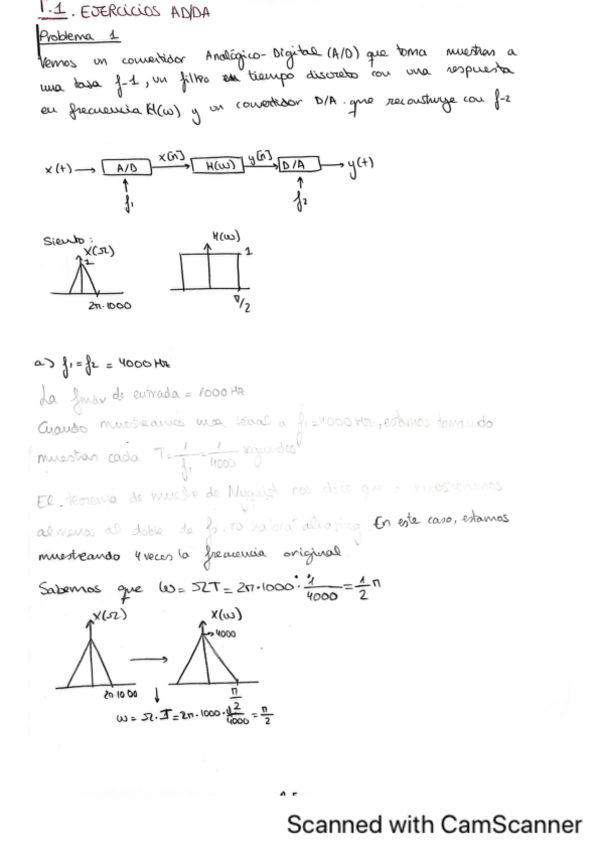 T.1. EJERCICIOS AD/DA
Problema 1
Vemos un convertidor Analógico-Digital (A/D) que toma muestras a
una tasa f-1, un filtro en tiempo discreto con una respuesta
en frecuencia H(ω) y un convertidor D/A que reconstruye con f-2
x(t) → A/D x[n] H(ω) y[n] D/A → y(t)
f₁ f₂
Siendo:
X(Ω) H(ω)
1
2π·1000 π/2
a) f₁ = f₂ = 4000 Hz
La fmáx de entrada = 1000 Hz
Cuando muestreamos una señal a f₁=4000 Hz, estamos tomando
muestras cada T = 1/f₁ = 1/4000 segundos
El teorema de de Nyquist nos dice que si muestreamos
al menos al doble de no habrá aliasing En este caso, estamos
muestreando 4 veces la frecuencia original
Sabemos que ω = ΩT = 2π·1000 · 1/4000 = 1/2 π
X(Ω) X(ω)
4000
2π·1000 π/2
ω = Ω·T = 2π·1000· /4000 = π/2
Scanned with CamScanner